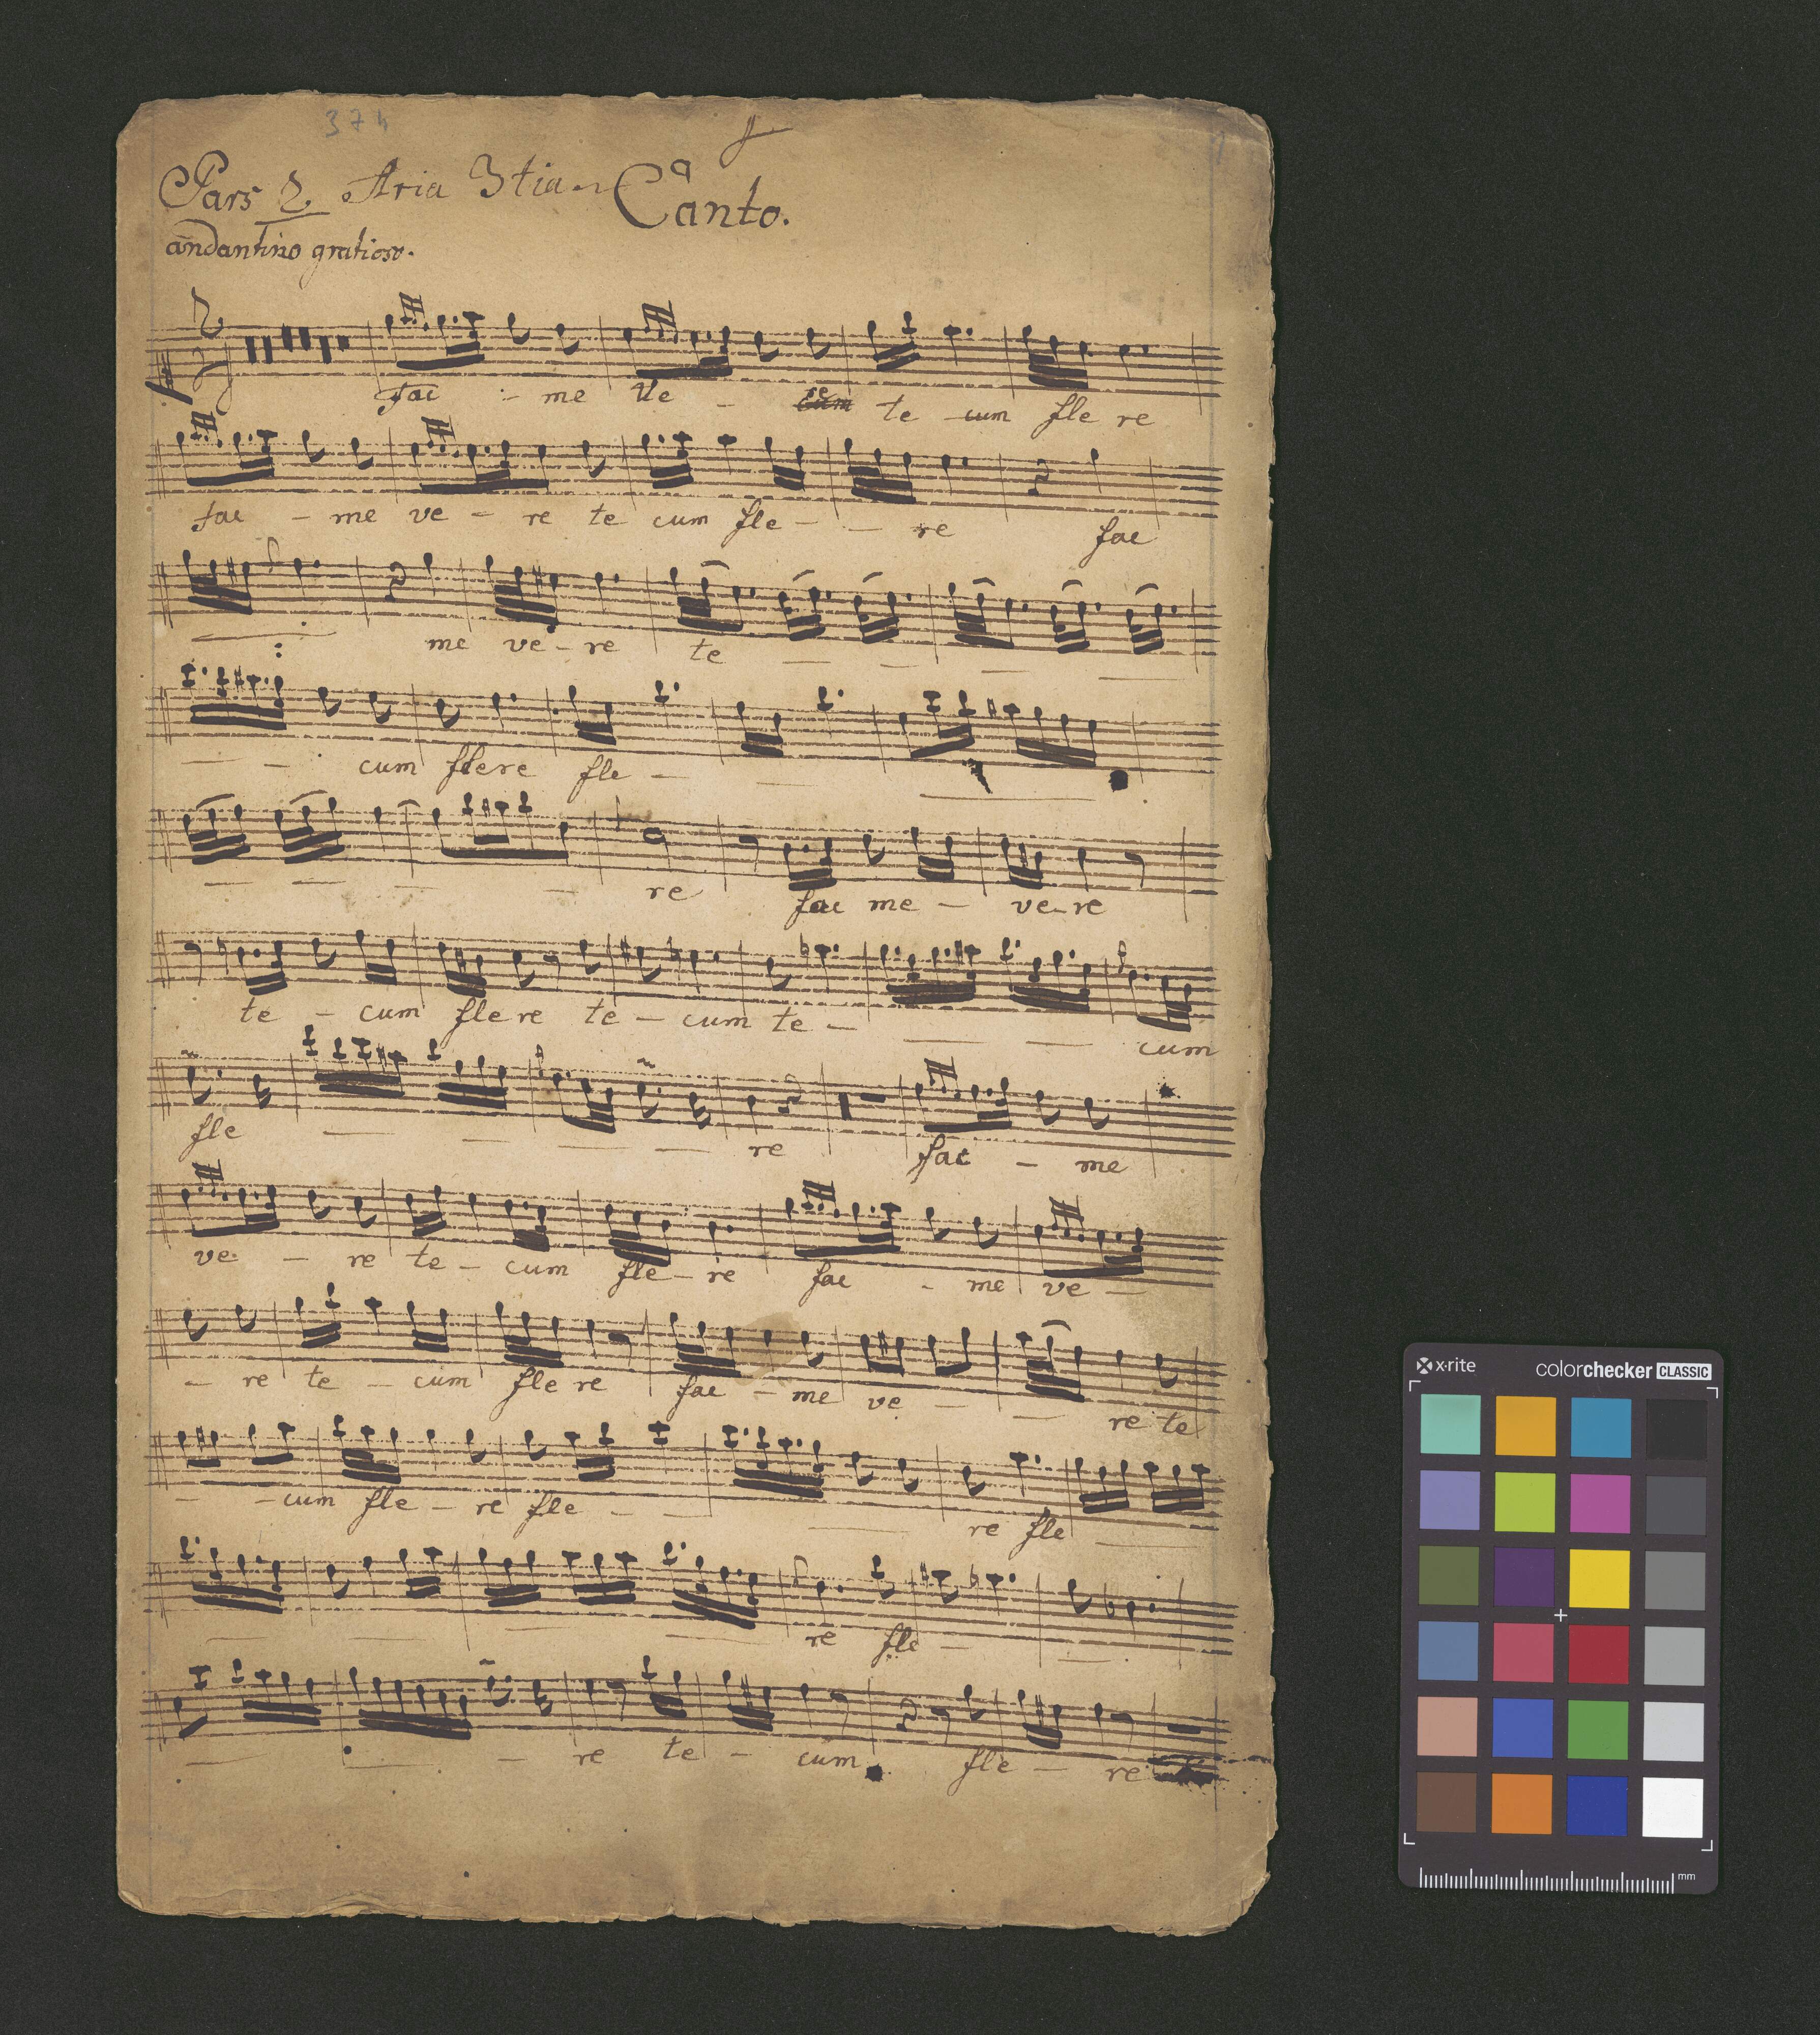 374
Pars 2 Aria 3tia Canto.
andantino gratioso.
fac - me Ve - re te cum fle re
fac - me ve - re te cum fle - - re fac
me ve - re te - - - -
- - cum flere fle - - -
- - - - re fac me - ve - re
te - cum flere te - cum te - - - cum
fle - - - - re fac - me
ve - re te - cum fle - re fac - me ve -
- re te - cum fle re fac - me ve - - re te
- - cum fle - re fle - - - re fle -
- - - - re fle - -
- - - re te - cum fle - re
x·rite colorchecker CLASSIC
mm